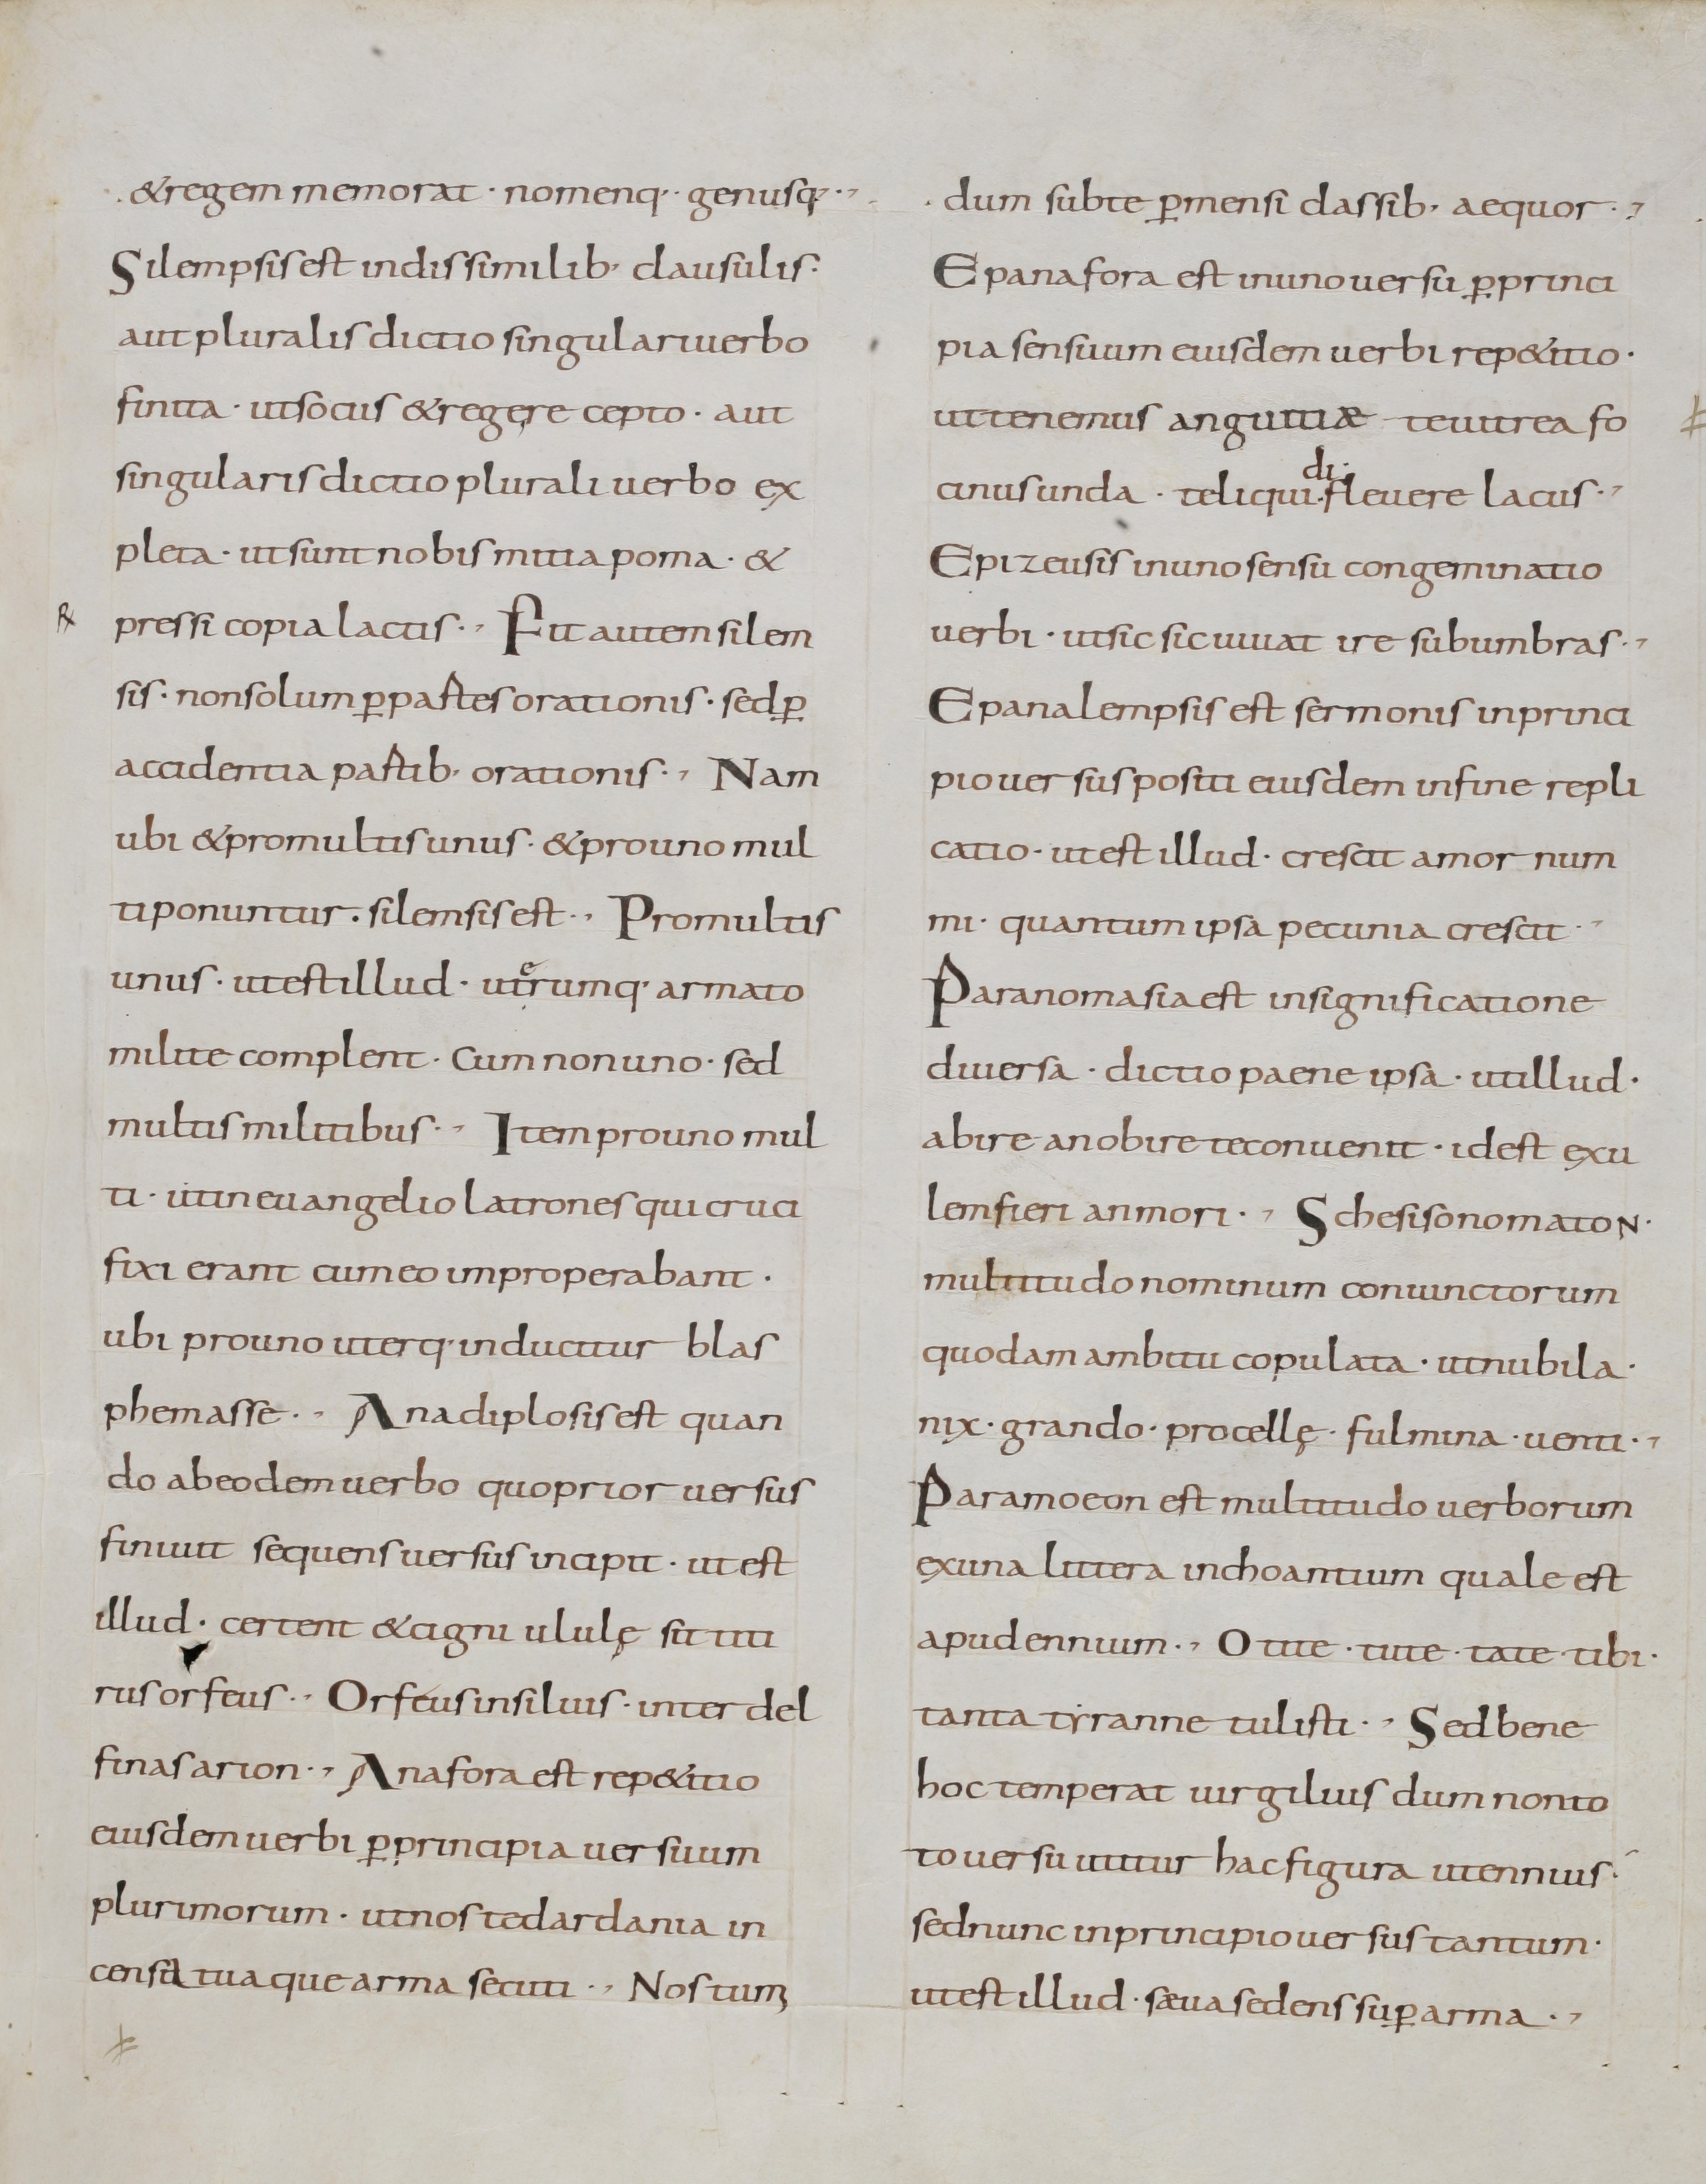 &regem memorat · nomenq·· genusq·
Silempsis est indissimilib· clausulis·
aut pluralis dictio singulari uerbo
finita · ut socius &regere cepto · aut
singularis dictio plurali uerbo ex
pleta · ut sunt nobis mitia poma · &
pressi copia lactis · Fit autem silem
sis · non solum ꝑ partes orationis · sed ꝑ
accidentia partib· orationis · Nam
ubi &pro multis unus · &pro uno mul
ti ponuntur. silemsis est · Pro multis
unus · ut est illud · uterumq· armato
milite complent · Cum non uno · sed
multis militibus · Item pro uno mul
ti · ut in euangelio latrones qui cruci
fixi erant cum eo improperabant ·
ubi pro uno uterq· inducitur blas
phemasse · Anadiplosis est quan
do ab eodem uerbo quo prior uersus
finiuit sequens uersus incipit · ut est
illud · certent &cigni ululę sit titi
rus orfeus · Orfeus in siluis · inter del
finas arion · Anafora est rep&itio
eiusdem uerbi ꝑ principia uersuum
plurimorum · ut nos te dardania in
censa tuaque arma secuti · Nos tum
dum subte ꝑmensi classib· aequor ·
Epanafora est in uno uersu ꝑ princi
pia sensuum eiusdem uerbi rep&itio ·
ut te nemus anguitiæ te uitrea fo
cinus unda · te liqui · fleuere lacus ·
di·
Epizeusis in uno sensu congeminatio
uerbi · ut sic sic iuuat ire sub umbras ·
Epanalempsis est sermonis in princi
pio uersus positi eiusdem in fine repli
catio · ut est illud · crescit amor num
mi · quantum ipsa pecunia crescit ·
Paranomasia est in significatione
diuersa · dictio paene ipsa · ut illud ·
abire an obire te conuenit · id est exu
lem fieri an mori · Schesis onomatoN ·
multitudo nominum coniunctorum
quodam ambitu copulata · ut nubila ·
nix · grando · procellę · fulmina · uenti ·
Paramoeon est multitudo uerborum
ex una littera inchoantium quale est
apud ennium · O tite · tute · tate · tibi ·
tanta tyranne tulisti · Sed bene
hoc temperat uirgilius dum non to
to uersu utitur hac figura ut ennius ·
sed nunc in principio uersus tantum ·
ut est illud · sæua sedens suꝑ arma ·